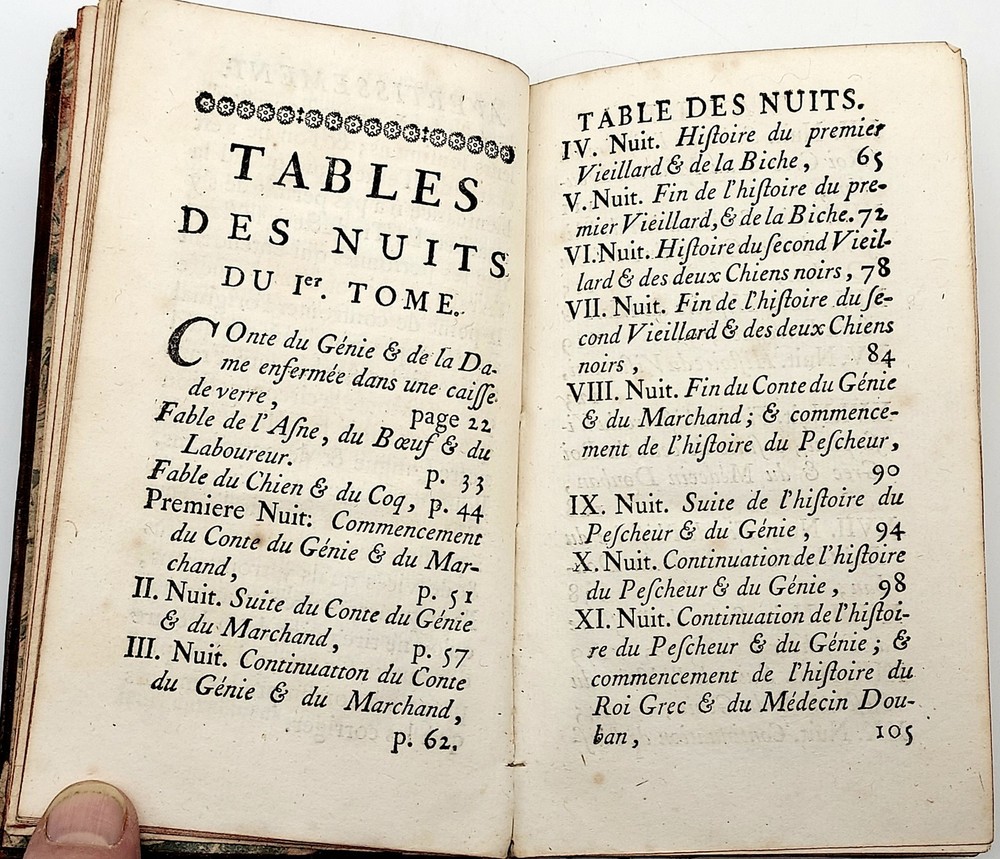 TABLES
DES NUITS
DU Ier. TOME.
COnte du Génie & de la Da-
me enfermée dans une caiſſe
de verre, page 22
Fable de l'Aſne, du Bœuf & du
Laboureur. p. 33
Fable du Chien & du Coq, p. 44
Premiere Nuit: Commencement
du Conte du Génie & du Mar-
chand, p. 51
II. Nuit. Suite du Conte du Génie
& du Marchand, p. 57
III. Nuit. Continuatton du Conte
du Génie & du Marchand,
p. 62.
TABLE DES NUITS.
IV. Nuit. Hiſtoire du premier
Vieillard & de la Biche, 65
V. Nuit. Fin de l'hiſtoire du pre-
mier Vieillard, & de la Biche. 72
VI. Nuit. Hiſtoire du ſecond Vieil-
lard & des deux Chiens noirs, 78
VII. Nuit. Fin de l'hiſtoire du ſe-
cond Vieillard & des deux Chiens
noirs, 84
VIII. Nuit. Fin du Conte du Génie
& du Marchand; & commence-
ment de l'hiſtoire du Peſcheur,
90
IX. Nuit. Suite de l'hiſtoire du
Peſcheur & du Génie, 94
X. Nuit. Continuation de l'hiſtoire
du Peſcheur & du Génie, 98
XI. Nuit. Continuation de l'hiſtoi-
re du Peſcheur & du Génie; &
commencement de l'hiſtoire du
Roi Grec & du Médecin Dou-
ban, 105